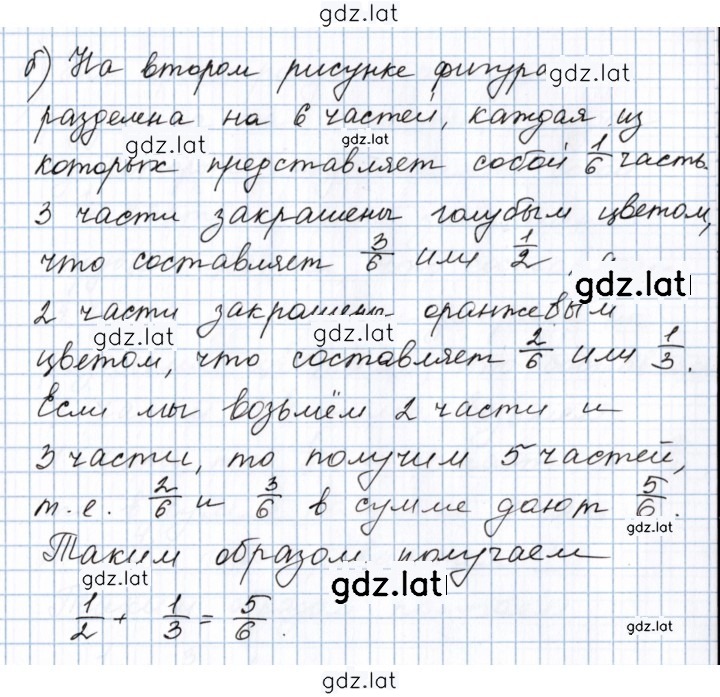 gdz.lat
б) На втором рисунке фигура
gdz.lat
разделена на 6 частей, каждая из
gdz.lat gdz.lat
которых представляет собой 1/6 часть.
3 части закрашены голубым цветом,
что составляет 3/6 или 1/2, а
gdz.lat
2 части закрашены оранжевым
gdz.lat gdz.lat
цветом, что составляет 2/6 или 1/3.
Если мы возьмём 2 части и
3 части, то получим 5 частей,
т.е. 2/6 и 3/6 в сумме дают 5/6.
gdz.lat
Таким образом получаем
gdz.lat gdz.lat
1/2 + 1/3 = 5/6.
gdz.lat
gdz.lat